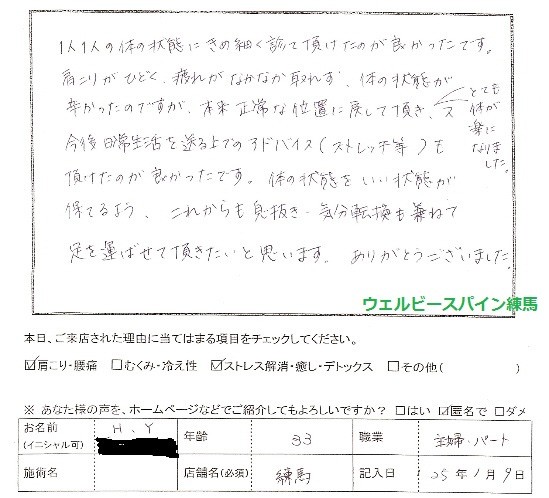 1人1人の体の状態にきめ細く診て頂けたのが良かったです。
肩こりがひどく、疲れがなかなか取れず、体の状態が
辛かったのですが、本来正常な位置に戻して頂き、
とても体が楽になりました。
今後日常生活を送る上でのアドバイス(ストレッチ等)も
頂けたのが良かったです。体の状態をいい状態が
保てるよう、これからも息抜き・気分転換も兼ねて
足を運ばせて頂きたいと思います。ありがとうございました。
ウェルビースパイン練馬
本日、ご来店された理由に当てはまる項目をチェックしてください。
☑肩こり・腰痛 □むくみ・冷え性 ☑ストレス解消・癒し・デトックス □その他( )
※ あなた様の声を、ホームページなどでご紹介してもよろしいですか? □はい ☑匿名で □ダメ
お名前(イニシャル可) H、Y 年齢 33 職業 主婦・パート
施術名 店舗名(必須) 練馬 記入日 '05年1月9日